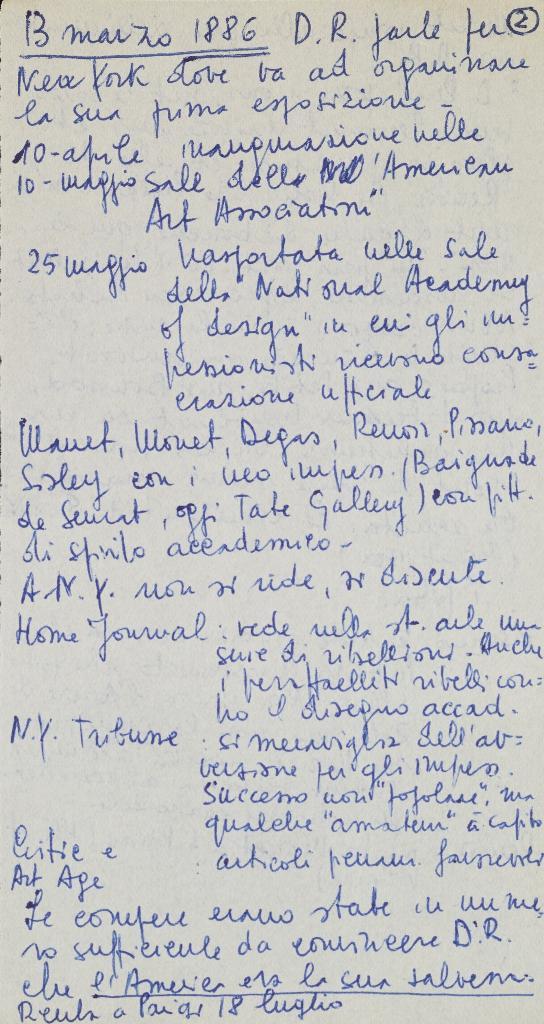 13 marzo 1886 D.R. parte per 2
New York dove va ad organizzare
la sua prima esposizione -
10-aprile inaugurazione nelle
10-maggio sale della "American
Art Association"
25 maggio trasportata nelle sale
della "National Academy
of design" in cui gli im=
pressionisti ricevono consa=
crazione ufficiale
Manet, Monet, Degas, Renoir, Pissarro,
Sisley con i neo impress. (Baignade
de Seurat, oggi Tate Gallery) con pitt.
di spirito accademico -
A N.Y. non si ride, si discute.
Home Journal : vede nella st. arte una
serie di ribellioni. Anche
i preraffaelliti ribelli con=
tro il disegno accad.
N.Y. Tribune : si meraviglia dell'av=
versione per gli impress.
Successo non "popolare", ma
qualche "amateur" à capito
Critic e : articoli favorevoli
Art Age
Le compere erano state in nume
ro sufficiente da convincere D.R.
che l'America era la sua salvezza.
Rentra a Parigi 18 luglio